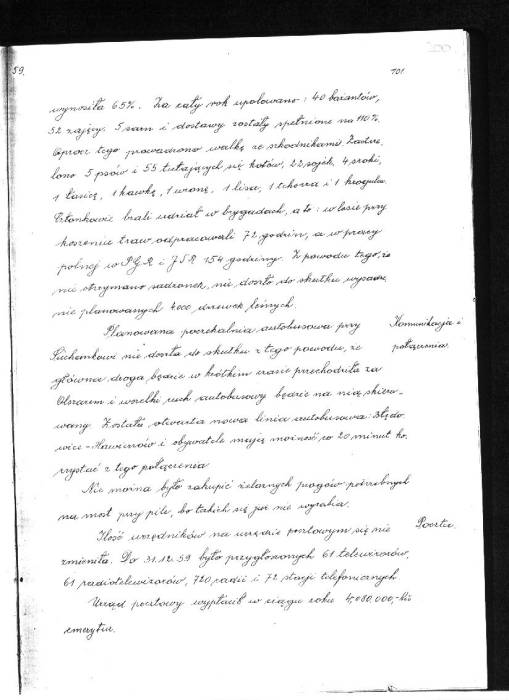 59.
101
wynosiła 65%. Za cały rok upolowano: 40 bażantów,
52 zajęcy. 5 sarn i dostawy zostały spełnione na 110%.
Oprócz tego prowadzono walkę ze szkodnikami. Zastrze-
lono 5 psów i 55 tułających się kotów, 22 sojek, 4 sroki,
1 łasicę, 1 kawkę, 1 wronę, 1 lisa, 1 tchórza i 1 krogulca.
Członkowie brali udział w brygadach, a to: w lesie przy
koszeniu traw odpracowali 72 godzin, a w pracy
polnej w PGR i JSR 154 godziny. Z powodu tego, że
nie otrzymano sadzonek, nie doszło do skutku wysadze-
nie planowanych 4000 drzewek leśnych.
Planowana poczekalnia autobusowa przy
Komunikacja i
połączenia.
nie doszła do skutku z tego powodu, że
główna droga będzie w krótkim czasie przechodziła za
Olszarem i wszelki ruch autobusowy będzie na nią skiero-
wany. Została otwarta nowa linia autobusowa: Błędo-
wice - Hawierzów i obywatele mają możność co 20 minut ko-
rzystać z tego połączenia.
Nie można było zakupić żelaznych progów potrzebnych
na most przy pile, bo takich się już nie wyrabia.
Ilość urzędników na urzędzie pocztowym się nie
Poczta.
zmieniła. Do 31.12.59 było przygłoszonych 61 telewizorów,
61 radiotelewizorów, 720 radii i 72 stacji telefonicznych.
Urząd pocztowy wypłacił w ciągu roku 4,080.000,- Kčs
emerytur.